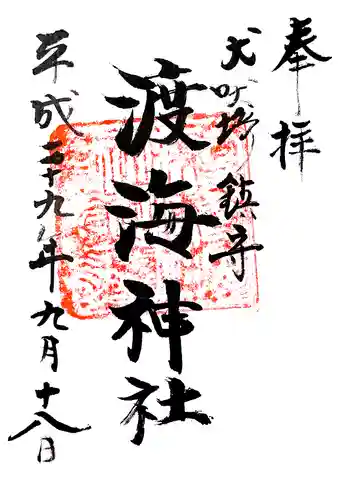 奉拝
犬吠埼鎮守
渡海神社
平成二十九年九月十八日